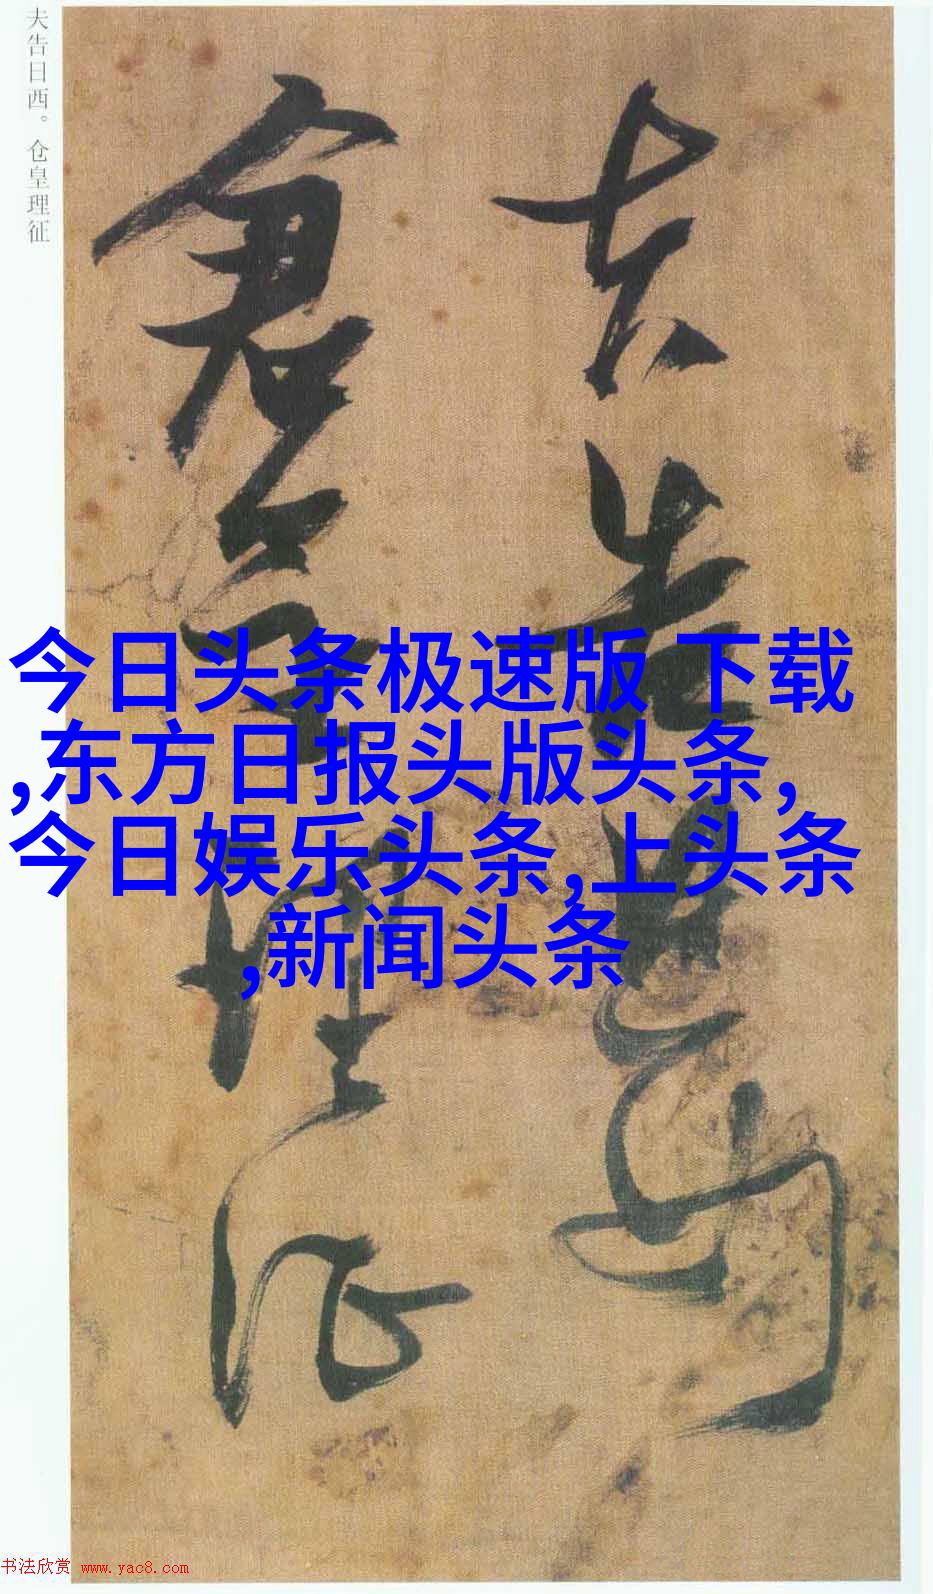 夫告日西。仓皇理征
今日头条极速版 下载
,东方日报头版头条,
今日娱乐头条,上头条
,新闻头条
书法欣赏 www.yac8.com